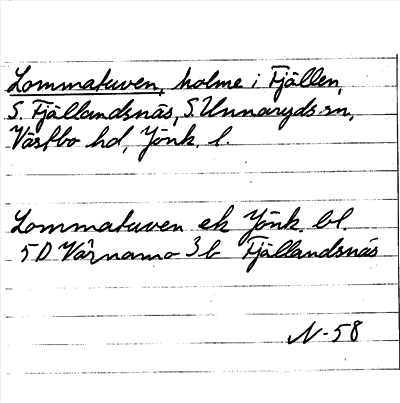 Lommatuven, holme i Fjällen,
S. Fjällandsnäs, S. Unnaryds sn,
Västbo hd, Jönk. l.
Lommatuven ek Jönk. bl.
5D Värnamo 3b Fjällandsnäs
N-58